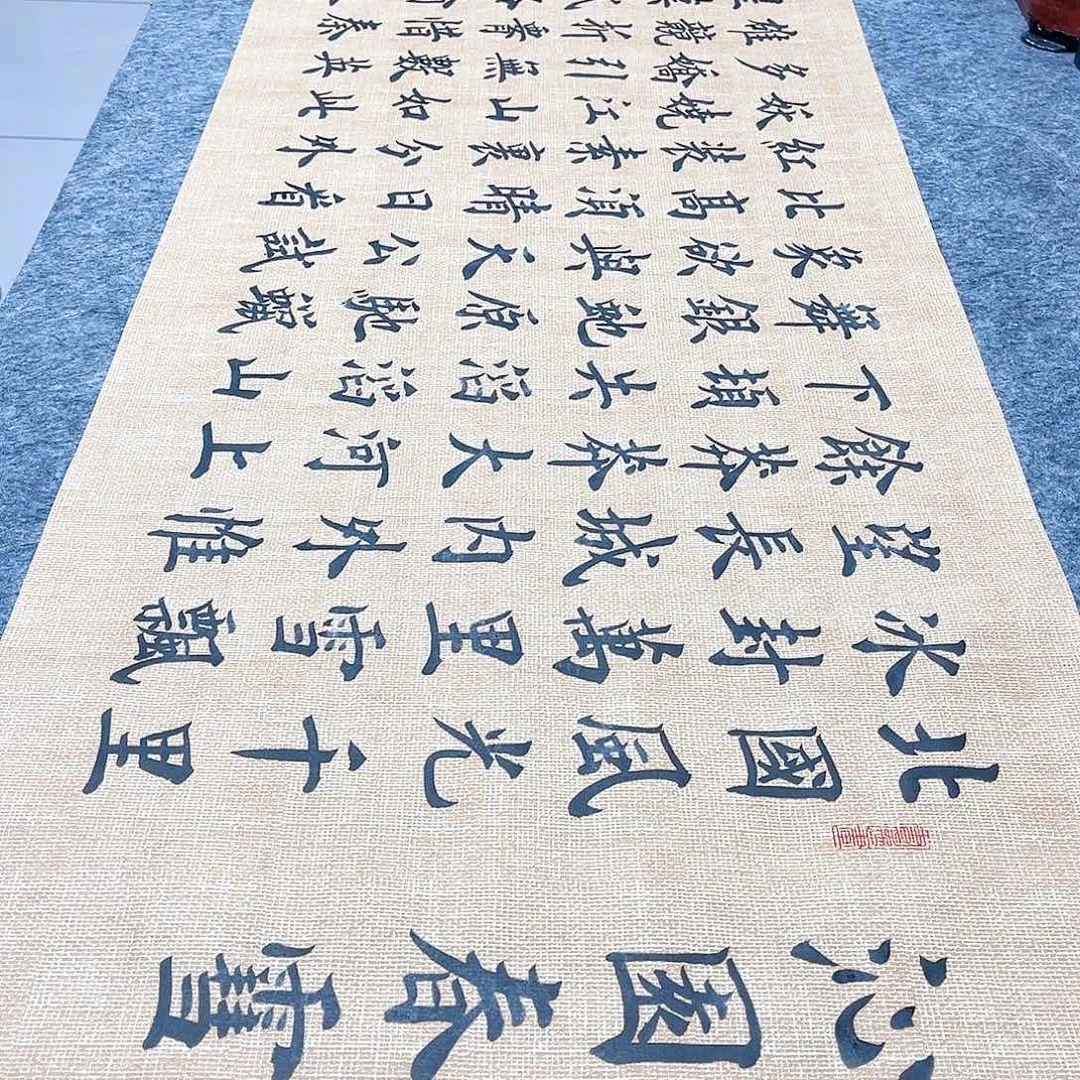 沁園春雪
北國風光千里
冰封萬里雪飄
望長城内外惟
餘莽莽大河上
下頓失滔滔山
舞銀虵原馳蠟
象欲與天公試
比高須晴日看
紅裝素裹分外
妖嬈江山如此
多嬌引無數英
雄競折腰惜秦